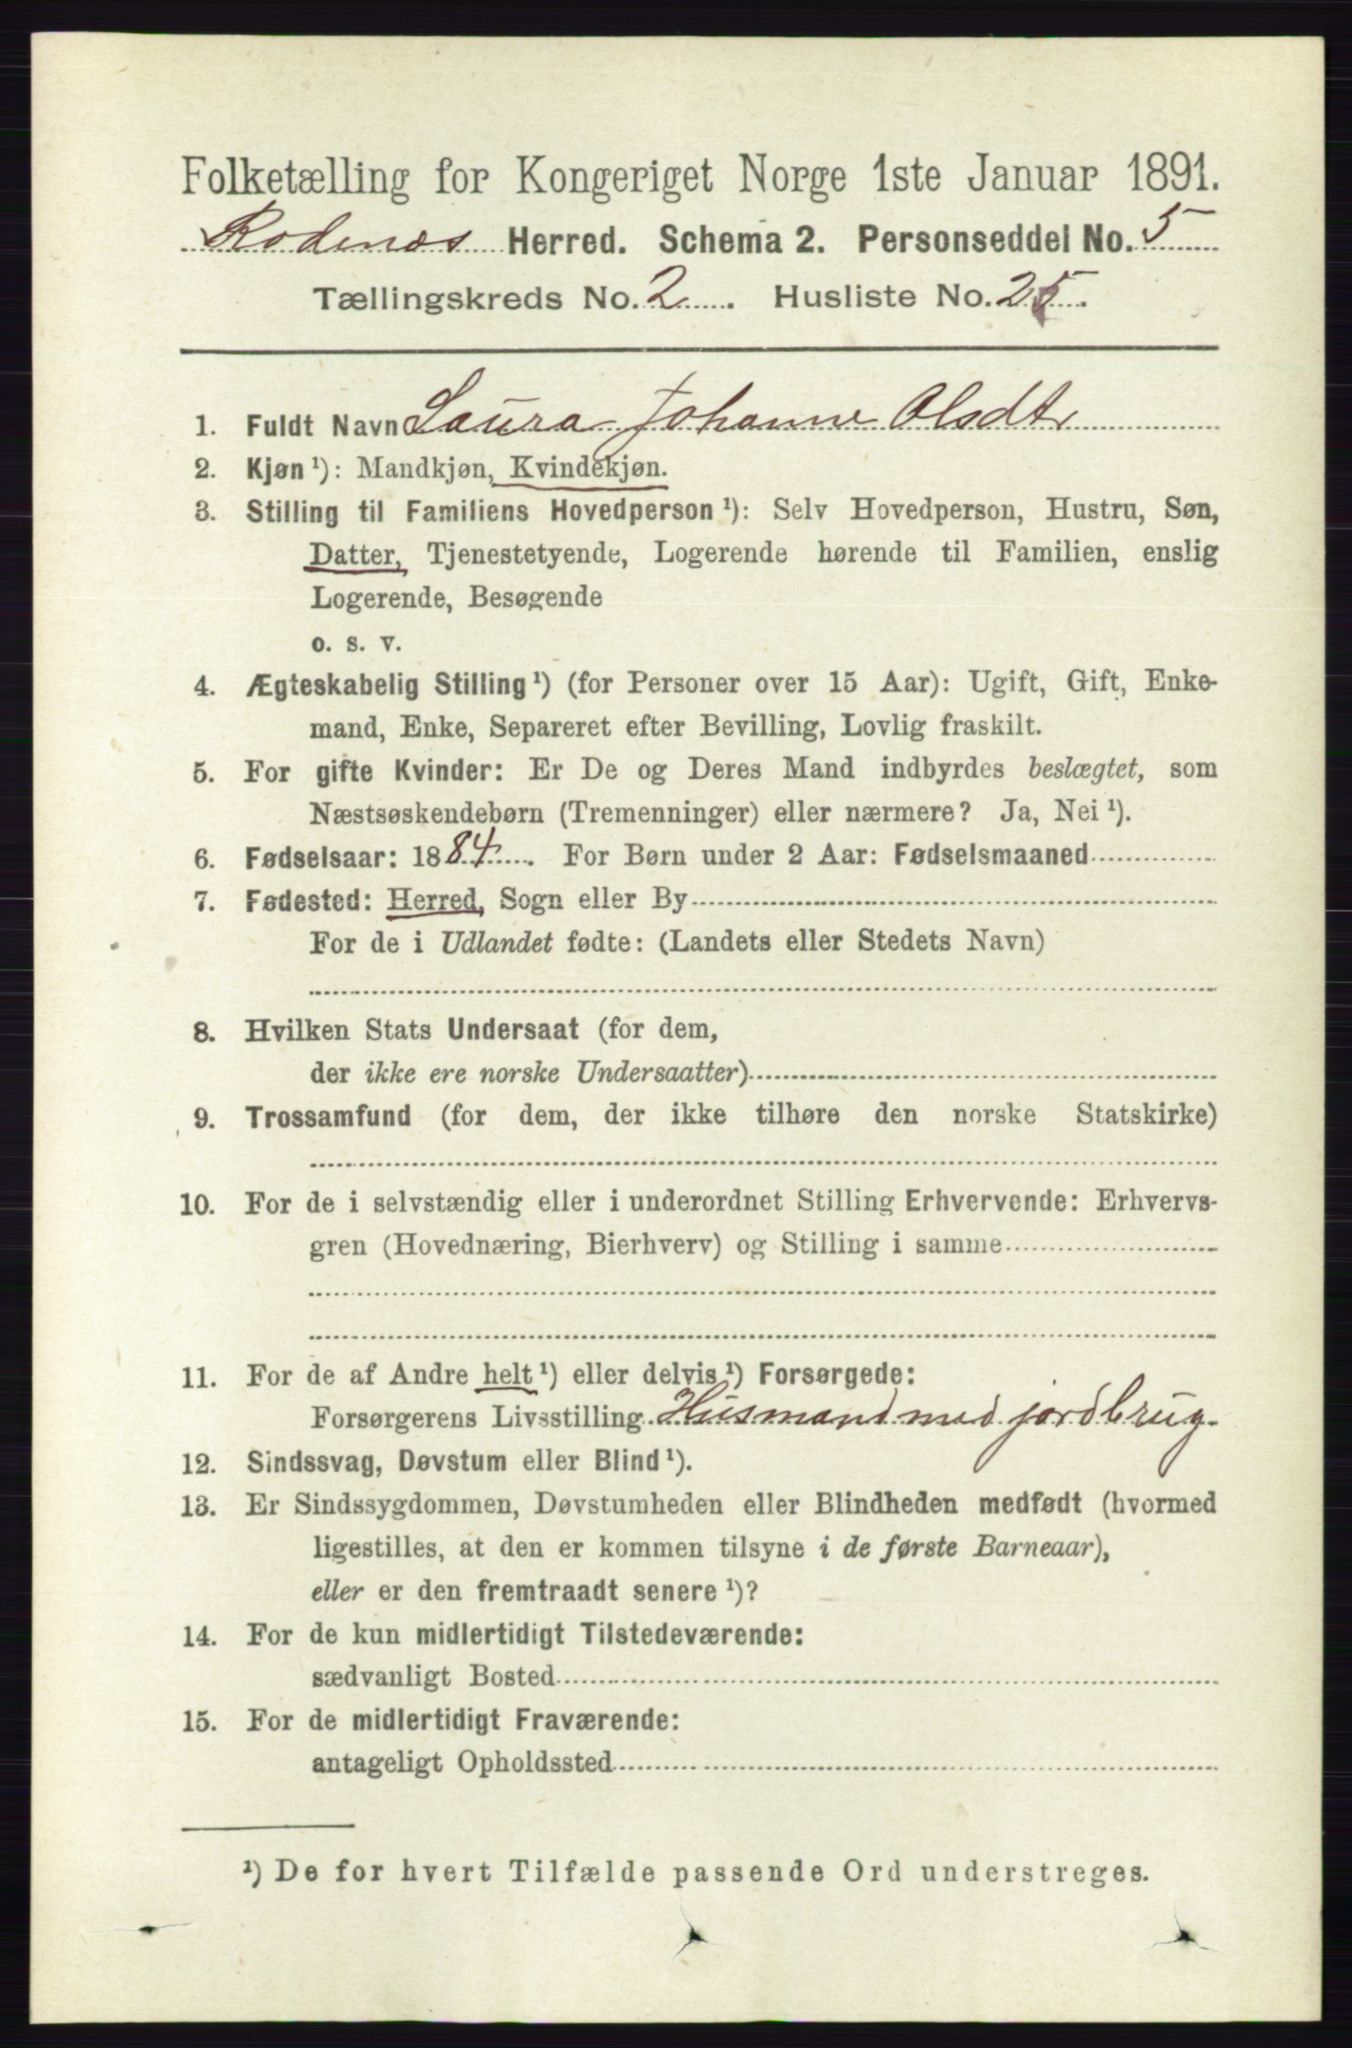 Folketælling for Kongeriget Norge 1ste Januar 1891.
Rødenæs Herred. Schema 2. Personseddel No. 5
Tællingskreds No. 2. Husliste No. 25.
1. Fuldt Navn Laura Johanne Olsdtr
2. Kjøn ¹): Mandkjøn, Kvindekjøn.
3. Stilling til Familiens Hovedperson ¹): Selv Hovedperson, Hustru, Søn,
Datter, Tjenestetyende, Logerende hørende til Familien, enslig
Logerende, Besøgende
o. s. v.
4. Ægteskabelig Stilling ¹) (for Personer over 15 Aar): Ugift, Gift, Enke-
mand, Enke, Separeret efter Bevilling, Lovlig fraskilt.
5. For gifte Kvinder: Er De og Deres Mand indbyrdes beslægtet, som
Næstsøskendebørn (Tremenninger) eller nærmere? Ja, Nei ¹).
6. Fødselsaar: 1884. For Børn under 2 Aar: Fødselsmaaned
7. Fødested: Herred, Sogn eller By
For de i Udlandet fødte: (Landets eller Stedets Navn)
8. Hvilken Stats Undersaat (for dem,
der ikke ere norske Undersaatter)
9. Trossamfund (for dem, der ikke tilhøre den norske Statskirke)
10. For de i selvstændig eller i underordnet Stilling Erhvervende: Erhvervs-
gren (Hovednæring, Bierhverv) og Stilling i samme
11. For de af Andre helt ¹) eller delvis ¹) Forsørgede:
Forsørgerens Livsstilling Husmand med jordbrug.
12. Sindssvag, Døvstum eller Blind ¹).
13. Er Sindssygdommen, Døvstumheden eller Blindheden medfødt (hvormed
ligestilles, at den er kommen tilsyne i de første Barneaar),
eller er den fremtraadt senere ¹)?
14. For de kun midlertidigt Tilstedeværende:
sædvanligt Bosted
15. For de midlertidigt Fraværende:
antageligt Opholdssted
¹) De for hvert Tilfælde passende Ord understreges.